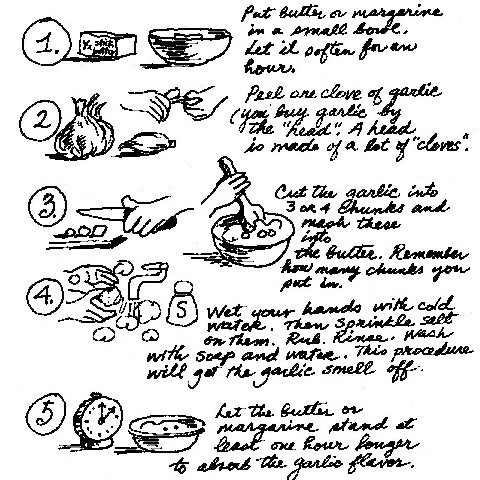 1.
½ stick
butter
Put butter or margarine
in a small bowl.
Let it soften for an
hour.
2
Peel one clove of garlic
(you buy garlic by
the "head". A head
is made of a lot of "cloves".
3.
Cut the garlic into
3 or 4 chunks and
mash these
into
the butter. Remember
how many chunks you
put in.
4.
S
Wet your hands with cold
water. Then sprinkle salt
on them. Rub. Rinse. Wash
with soap and water. This procedure
will get the garlic smell off.
5
Let the butter or
margarine stand at
least one hour longer
to absorb the garlic flavor.